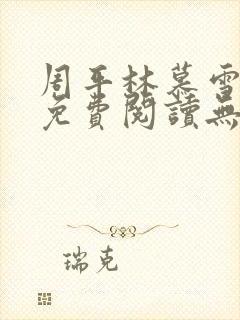 周平林慕雪
免費閱讀無
瑞克